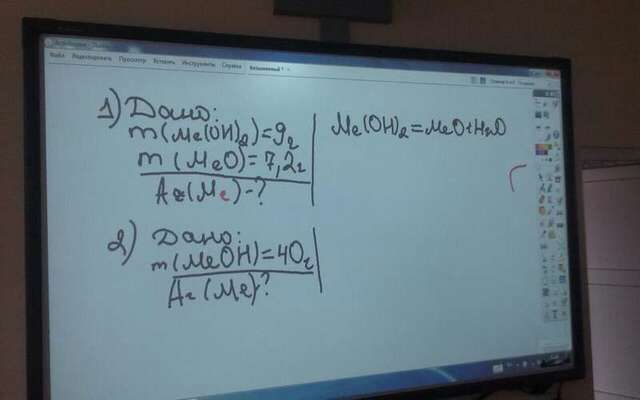 Файл Редактировать Просмотр Вставить Инструменты Справка
1) Дано:
m(Me(OH)2)=9г
m(MeO)=7,2г
Ar(Me)-?
Me(OH)2=MeO+H2O
2) Дано:
m(MeOH)=40г
Ar(Me)-?